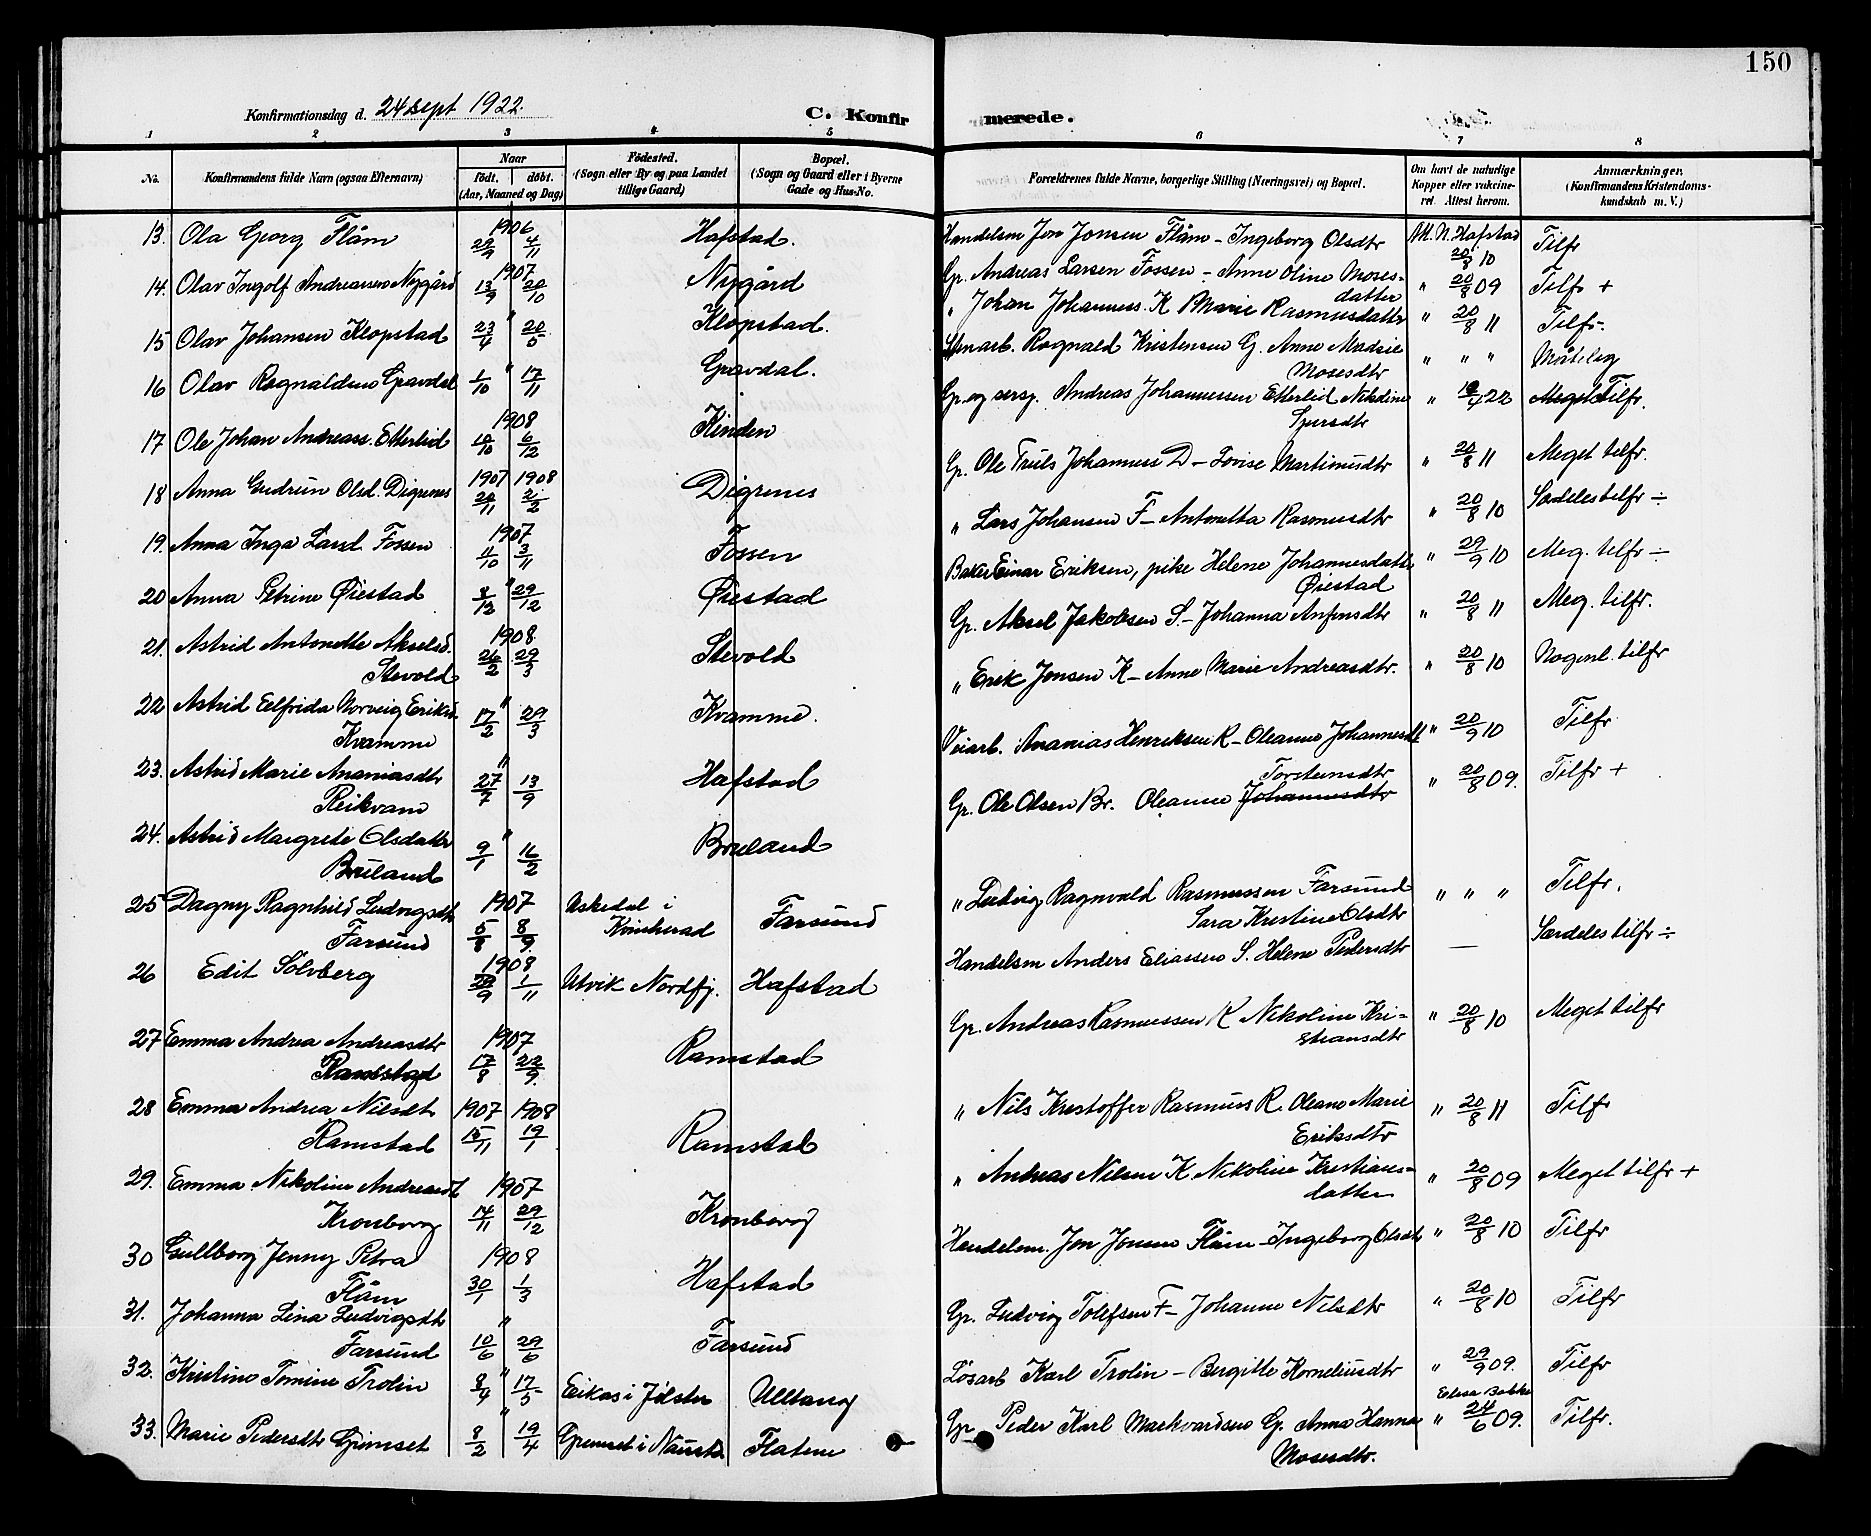 150
Konfirmationsdag d. 24 sept 1922.
C. Konfirmerede.
1 2 3 4 5 6 7 8
No. Konfirmandens fulde Navn (ogsaa Efternavn) Naar født. døbt. (Aar, Maaned og Dag) Fødested. (Sogn eller By og paa Landet tillige Gaard) Bopæl. (Sogn og Gaard eller i Byerne Gade og Hus-No. Forældrenes fulde Navne, borgerlige Stilling (Næringsvei) og Bopæl. Om havt de naturlige Kopper eller vakcineret. Attest herom. Anmærkninger. (Konfirmandens Kristendomskundskab m. V.)
13. Ola Georg Flåm 1906 29/9 4/11 Hafstad. Handelsm Jon Jonsen Flåm - Ingeborg Olsdtr M. N. Hafstad 20/8 10 Tilfr
14. Olav Ingolf Andreassen Nygård 1907 13/9 20/10 Nygård Gp. Andreas Larsen Fossen - Anne Oline Mosesdatter " 20/8 09 Tilfr +
15 Olav Johansen Klopstad " 23/4 20/5 Klopstad. " Johan Johanness. K Marie Rasmusdatter " 20/8 11 Tilfr-
16 Olav Ragnaldsen Gravdal " 1/10 17/11 Gravdal. Ragnald Kristensen G. Anne Mosesdtr " " " Måtelig
17 Ole Johan Andreass. Etterlid 1908 10/10 6/12 Kinden Gp. og sersj. Andreas Johannessen Etterlid Nikoline " 4 22 Meget Tilfr.
18 Anna Gudrun Olsd. Digrenes 1907 1908 20/11 2/2 Digrenes Gp. Ole Truls Johanness D - Lovise Martinusdtr " 20/8 11 Meget tilfr.
19. Anna Inga Larsd. Fossen 1907 11/10 3/11 Fossen " Lars Johansen F - Antonetta Rasmusdtr " 20/8 10 Særdeles tilfr ÷
20 Anna Petrine Øiestad " 8/12 29/12 Øiestad Baker Einar Eriksen, pike Helene Johannesdatter Øiestad " 29/9 10 Meg. tilfr ÷
21. Astrid Antonette Akselsd. Stevold 1908 26/2 29/3 Stevold Gp. Aksel Jakobsen S. - Johanna Anfinsdtr " 20/8 11 Meg. tilfr.
22 Astrid Elfrida Norveig Eriksd. Kvamme " 17/2 29/3 Kvamme. " Erik Jonsen K - Anne Marie Andreasdtr. " 20/8 10 Nogenl. tilfr
23. Astrid Marie Ananiasdtr Reikvam " 27/7 13/9 Hafstad Veiarb. Ananias Henriksen R - Oleanna Johannesdt " 20/9 10 Tilfr
24. Astrid Margrete Olsdatter Bruland " 9/1 16/2 Bruland Gp. Ole Olsen Br. Oleanna Johannesdtr Torsteinsdtr " 20/8 09. Tilfr +
25 Dagny Ragnhild Ludvigsdtr Farsund 1907 5/8 8/9. Uskedal i Kvinherad Farsund " Ludvig Ragnvald Rasmussen Farsund Sara Kristine Olsdtr " " " Tilfr.
26 Edit Sølvberg 1908 28/9 1/11 Utvik Nordfj. Hafstad Handelsm Anders Eliassen S. Helene Pedersdtr — Særdeles tilfr ÷
27 Emma Andrea Andreasdtr Ramstad 1907 17/8 22/9. Ramstad Gp. Andreas Rasmussen R Nikoline Kristiansdtr " 20/8 10 Meget tilfr
28 Emma Andrea Nilsdt Ramstad 1907 1908 15/11 19/1 Ramstad " Nils Kristoffer Rasmuss R. Oleane Marie Eriksdtr " 20/8 11 Tilfr
29. Emma Nikoline Andreasdt Kronborg 1907 14/11 29/12 Kronborg " Andreas Nilsen K Nikoline Kristiansdatter " 20/8 09 Meget tilfr +
30 Gullborg Jenny Petra Flåm 1908 30/1 1/3 Hafstad Handelsm. Jon Jonsen Flåm - Ingeborg Olsdtr " 20/8 10 Tilfr
31. Johanna Lina Ludvigsdtr Farsund " 10/6 29/6 Farsund Gp. Ludvig Tolefsen F - Johanne Nilsdtr " 20/8 10 Tilfr
32. Kristine Tomine Trolin " 8/4 17/5 Eikas i Jølster Ulltang Løsarb Karl Trolin - Bergitte Korneliusdtr " 29/9 09. Tilfr
33. Marie Pedersdtr Grimset " 8/2 19/4 Grimset i Naustd. Flatene Gp Peder Karl Markvardsen G. Anna Hanna Mosesdtr. " 24/6 09. Tilfr.